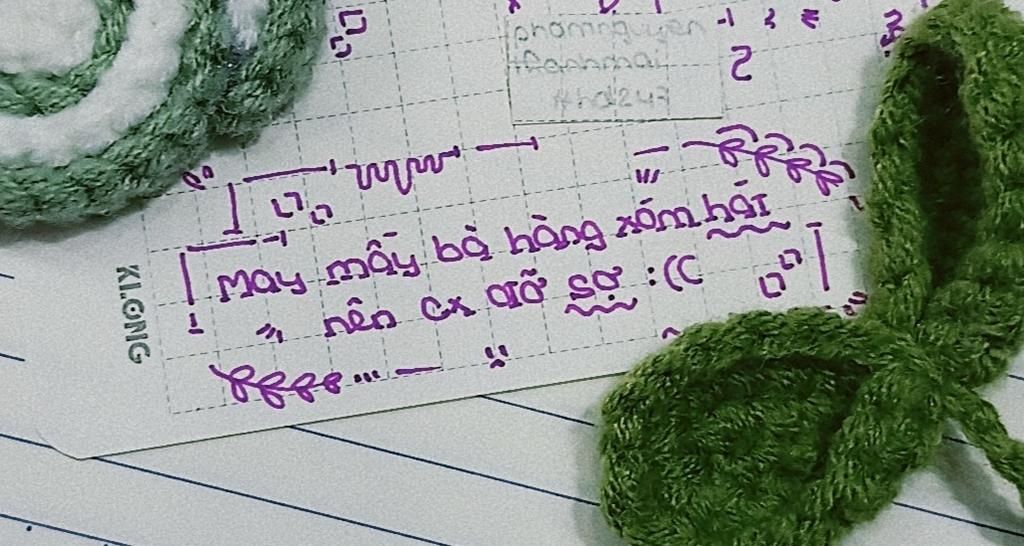 phamnguyen
thanhmai
#hd247
2
May mấy bà hàng xóm hái
nên cx đỡ sợ :((
KLONG